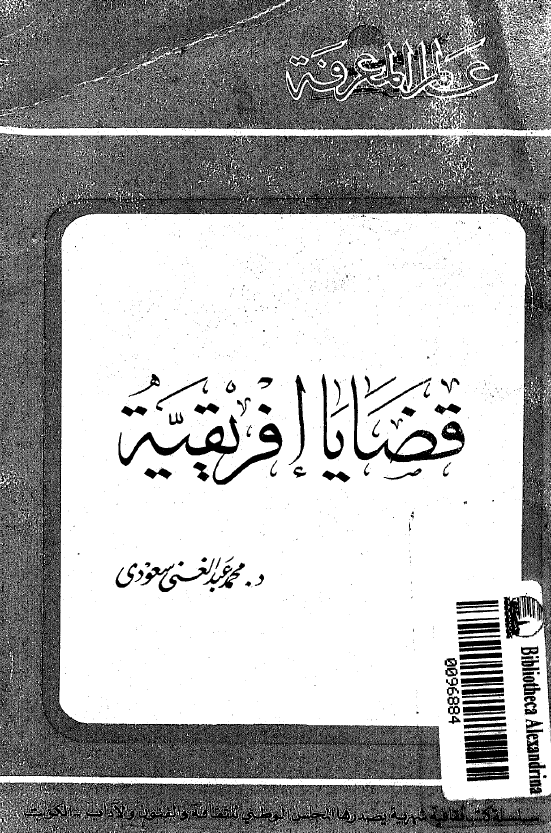 عالم المعرفة
قضايا إفريقية
د. محمد عبد الغني سعودي
Bibliotheca Alexandrina
0096884
سلسلة كتب ثقافية شهرية يصدرها المجلس الوطني للثقافة والفنون والآداب - الكويت